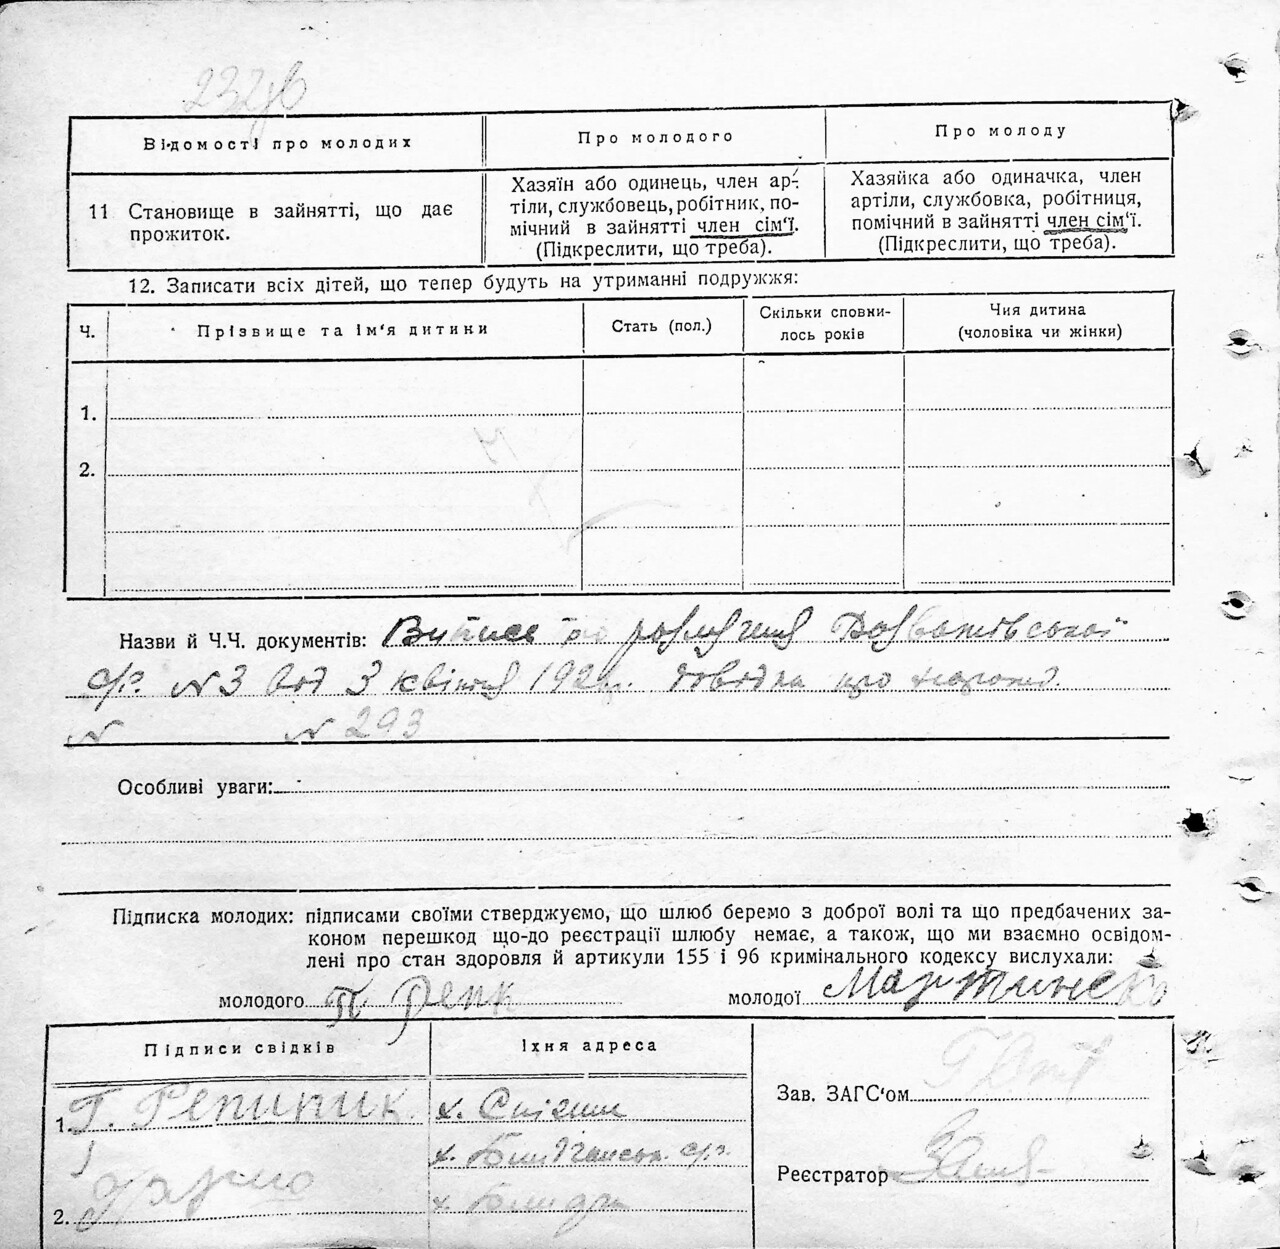 232
Відомості про молодих
Про молодого
Про молоду
11 Становище в зайнятті, що дає
прожиток.
Хазяїн або одинець, член ар-
тіли, службовець, робітник, по-
мічний в зайнятті член сім'ї.
(Підкреслити, що треба).
Хазяйка або одиначка, член
артіли, службовка, робітниця,
помічний в зайнятті член сім'ї.
(Підкреслити, що треба).
12. Записати всіх дітей, що тепер будуть на утриманні подружжя:
Ч.
Прізвище та ім'я дитини
Стать (пол.)
Скільки сповни-
лось років
Чия дитина
(чоловіка чи жінки)
1.
2.
Назви й Ч.Ч. документів: Витись про розлучення
с/р. №3 від 3 квітня 192 р. довідка про
№ № 293
Особливі уваги:
Підписка молодих: підписами своїми стверджуємо, що шлюб беремо з доброї волі та що предбачених за-
коном перешкод що-до реєстрації шлюбу немає, а також, що ми взаємно освідом-
лені про стан здоровля й артикули 155 і 96 кримінального кодексу вислухали:
молодого П. Репк
молодої Мартиненко
Підписи свідків
Їхня адреса
1. Г. Репипик
х.
х. с/р.
2.
х.
Зав. ЗАГС'ом
Реєстратор